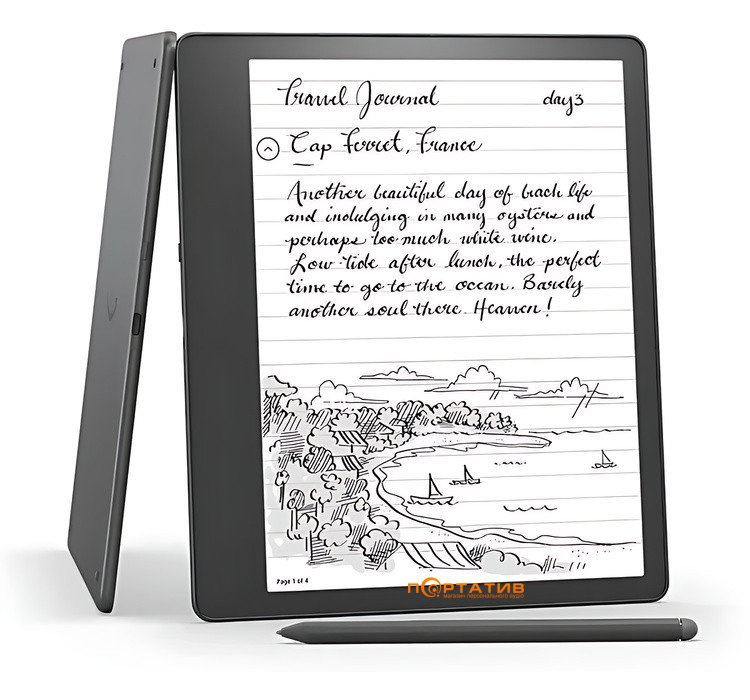 Travel Journal day3
Cap Ferret, France
Another beautiful day of beach life
and indulging in many oysters and
perhaps too much white wine.
Low tide after lunch, the perfect
time to go to the ocean. Barely
another soul there. Heaven!
Page 1 of 4
ПОРТАТИВ
магазин персонального аудіо